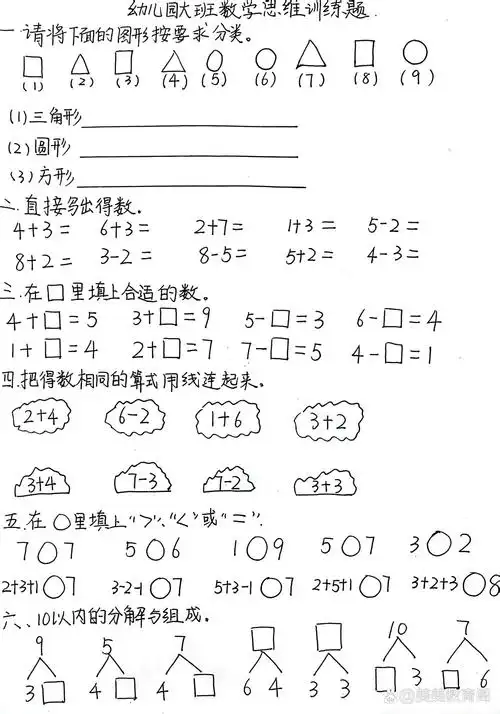 幼儿园大班数学思维训练题.
一.请将下面的图形按要求分类。
(1) (2) (3) (4) (5) (6) (7) (8) (9)
(1)三角形
(2)圆形
(3)方形
二.直接写出得数。
4+3= 6+3= 2+7= 1+3= 5-2=
8+2= 3-2= 8-5= 5+2= 4-3=
三.在□里填上合适的数。
4+□=5 3+□=9 5-□=3 6-□=4
1+□=4 2+□=7 7-□=5 4-□=1
四.把得数相同的算式用线连起来。
2+4 6-2 1+6 3+2
3+4 7-3 7-2 3+3
五.在○里填上">"、"<"或"=".
7○7 5○6 1○9 5○7 3○2
2+3+1○7 3-2-1○7 5+3-1○7 2+5+1○7 3+2+3○8
六、10以内的分解与组成。
9 5 7 □ □ 10 7
3 □ 4 □ 4 □ 6 4 3 3 □ 3 □ 6
美美教育阁